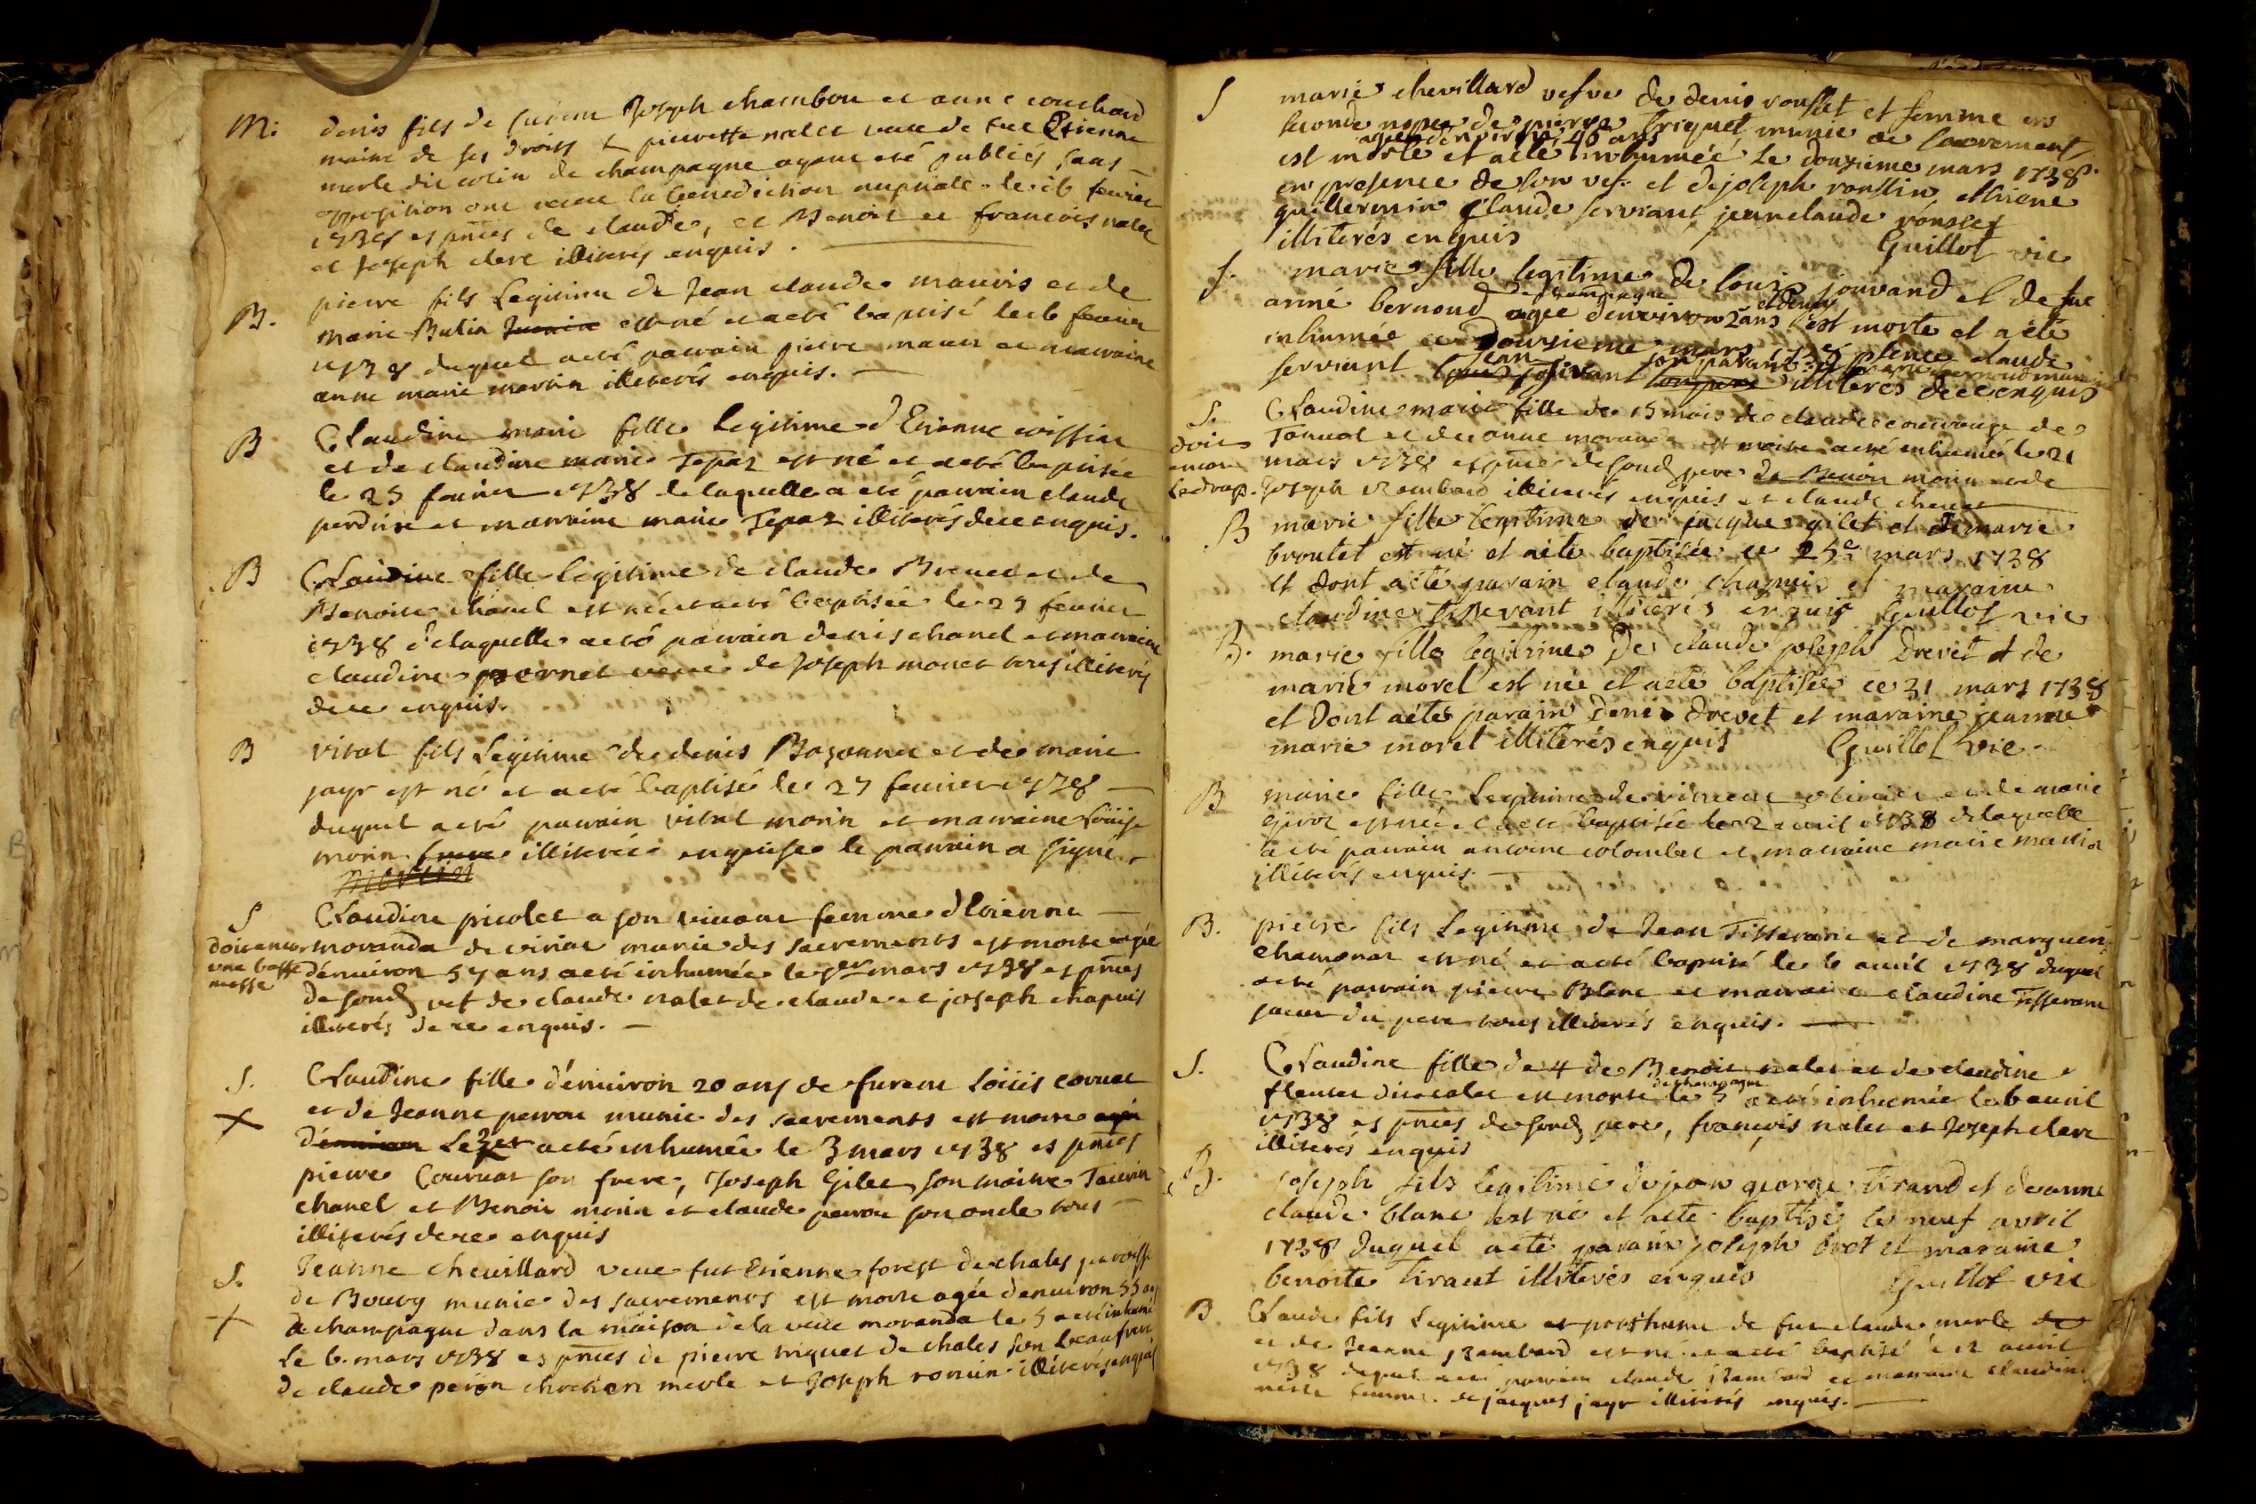 M: denis fils de furent Joseph chambon et anne couchard
maitre de ses droits et pierrette nalet veuve de feu Etienne
merle dit colin de champagne ayant eté publiés sans
opposition ont receu la benediction nuptiale le 16 fevrier
1738 es pnces de claude, et Benoit et francois nalet
et Joseph clerc illiterés enquis.
B. pierre fils Legitime de Jean claude mauris et de
marie Butin est né et a eté baptisé le 16 fevrier
1738 duquel a eté parrain pierre mauris et marraine
anne marie martin illiterés enquis.
B Claudine marie fille legitime d'Etienne
et de claudine marie Tepaz est né et a eté baptisée
le 25 fevrier 1738 de laquelle a eté parrain claude
perdrix et marraine marie Tepaz illiterés de ce enquis.
B Claudine fille legitime de claude Brevet et de
Benoite chanel est née et a eté baptisée le 27 fevrier
1738 de laquelle a eté parrain denis chanel et marraine
claudine pernet veuve de Joseph monet tous illiterés
de ce enquis.
B vital fils Legitime de denis Bozonnet et de marie
jayr est né et a eté baptisé le 27 fevrier 1738
duquel a eté parrain vital morin et marraine Loüise
morin illiterée enquise le parrain a signé
S Claudine picolet a son vivant femme d'Etienne
doit encor moranda de viriat munie des sacrements est morte agée
une basse d'environ 57 ans a eté inhumée le 1er mars 1738 es pnces
messe de sond vef de claude nalet de claude et joseph chapuis
illiterés de ce enquis.
S. Claudine fille d'environ 20 ans de furent Loüis corvat
X et de Jeanne perrou munie des sacrements est morte
a eté inhumée le 3 mars 1738 es pnces
pierre Courvat son frere, Joseph Gilet son maitre Taurin
chanel et Benoit morin et claude perrou son oncle tous
illiterés de ce enquis
S. Jeanne chevillard veuve fut Etienne forest de chales paroisse
de Bourg munie des sacrements est morte agée d'environ 55 ans
X a champagne dans la maison de la veuve moranda le 5 a eté inhumé
Le 6. mars 1738 es pnces de pierre triquet de chales son beaufrere
de claude peron chretien merle et Joseph romin illiterés enquis
S marie chevillard vefve de denis rousset et femme en
seconde nopce de pierre triquet munie de sacrement
agée d'environ 46 ans
est morte et a eté inhumée le douzieme mars 1738
en presence de son vef. et de joseph roussin ethiene
guillermin claude serviant jean claude rousset
illiterés enquis Guillot vic
S. marie fille legitime de louis jouvand et de fue
de champagne et demy
anne bernoud agée d'environ 2 ans est morte et a eté
inhumée ce douzieme mars 1738 presence claude
Jean son parain
serviant illiterés de ce enquis
S. Claudine marie fille de 15 mois de claude de
doit Tonnot et de anne moranda est morte a eté inhumé le 21
encor mars 1738 es pnces de sond pere de Benoit morin et de
Ledrap. Joseph Rambard illiterés enquis et claude
B marie fille legitime de jacque gilet et de marie
broutet est né et a eté baptisée ce 25e mars 1738
et dont a eté parain claude chapuis et maraine
claudine Tisserant illiterés enquis Guillot vic
B. marie fille legitime de claude joseph drevet et de
marie morel est née et a eté baptisée ce 31 mars 1738
et dont a eté parain denis drevet et maraine jeanne
marie morel illiterés enquis Guillot vic
B marie fille Legitime de vincent et de marie
est née et a eté baptisée le 2 avril 1738 de laquelle
a eté parrain antoine colombet et marraine marie martin
illiterés enquis.
B. pierre fils Legitime de Jean Tisserant et de marguerite
chamonat est né et a eté baptisé le 6 avril 1738 duquel
a eté parrain pierre Blanc et marraine claudine Tisserant
soeur du pere tous illiterés enquis.
S. Claudine fille de 4 de Benoit nalet et de claudine
de champagne
est morte le 5 a eté inhumée le 6 avril
1738 es pnces de sond pere, françois nalet et Joseph clerc
illiterés enquis
B. joseph fils legitime de jean george tirand et de anne
claude blanc est né et a eté baptisé le neuf avril
1738 duquel a eté parain joseph brot et maraine
benoite tirant illiterés enquis Guillot vic
B Claude fils Legitime et posthume de fut claude merle
et de Jeanne rambard est né et a eté baptisé le 12 avril
1738 duquel a eté parrain claude rambard et marraine claudine
merle femme de jacques jayr illiterés enquis.